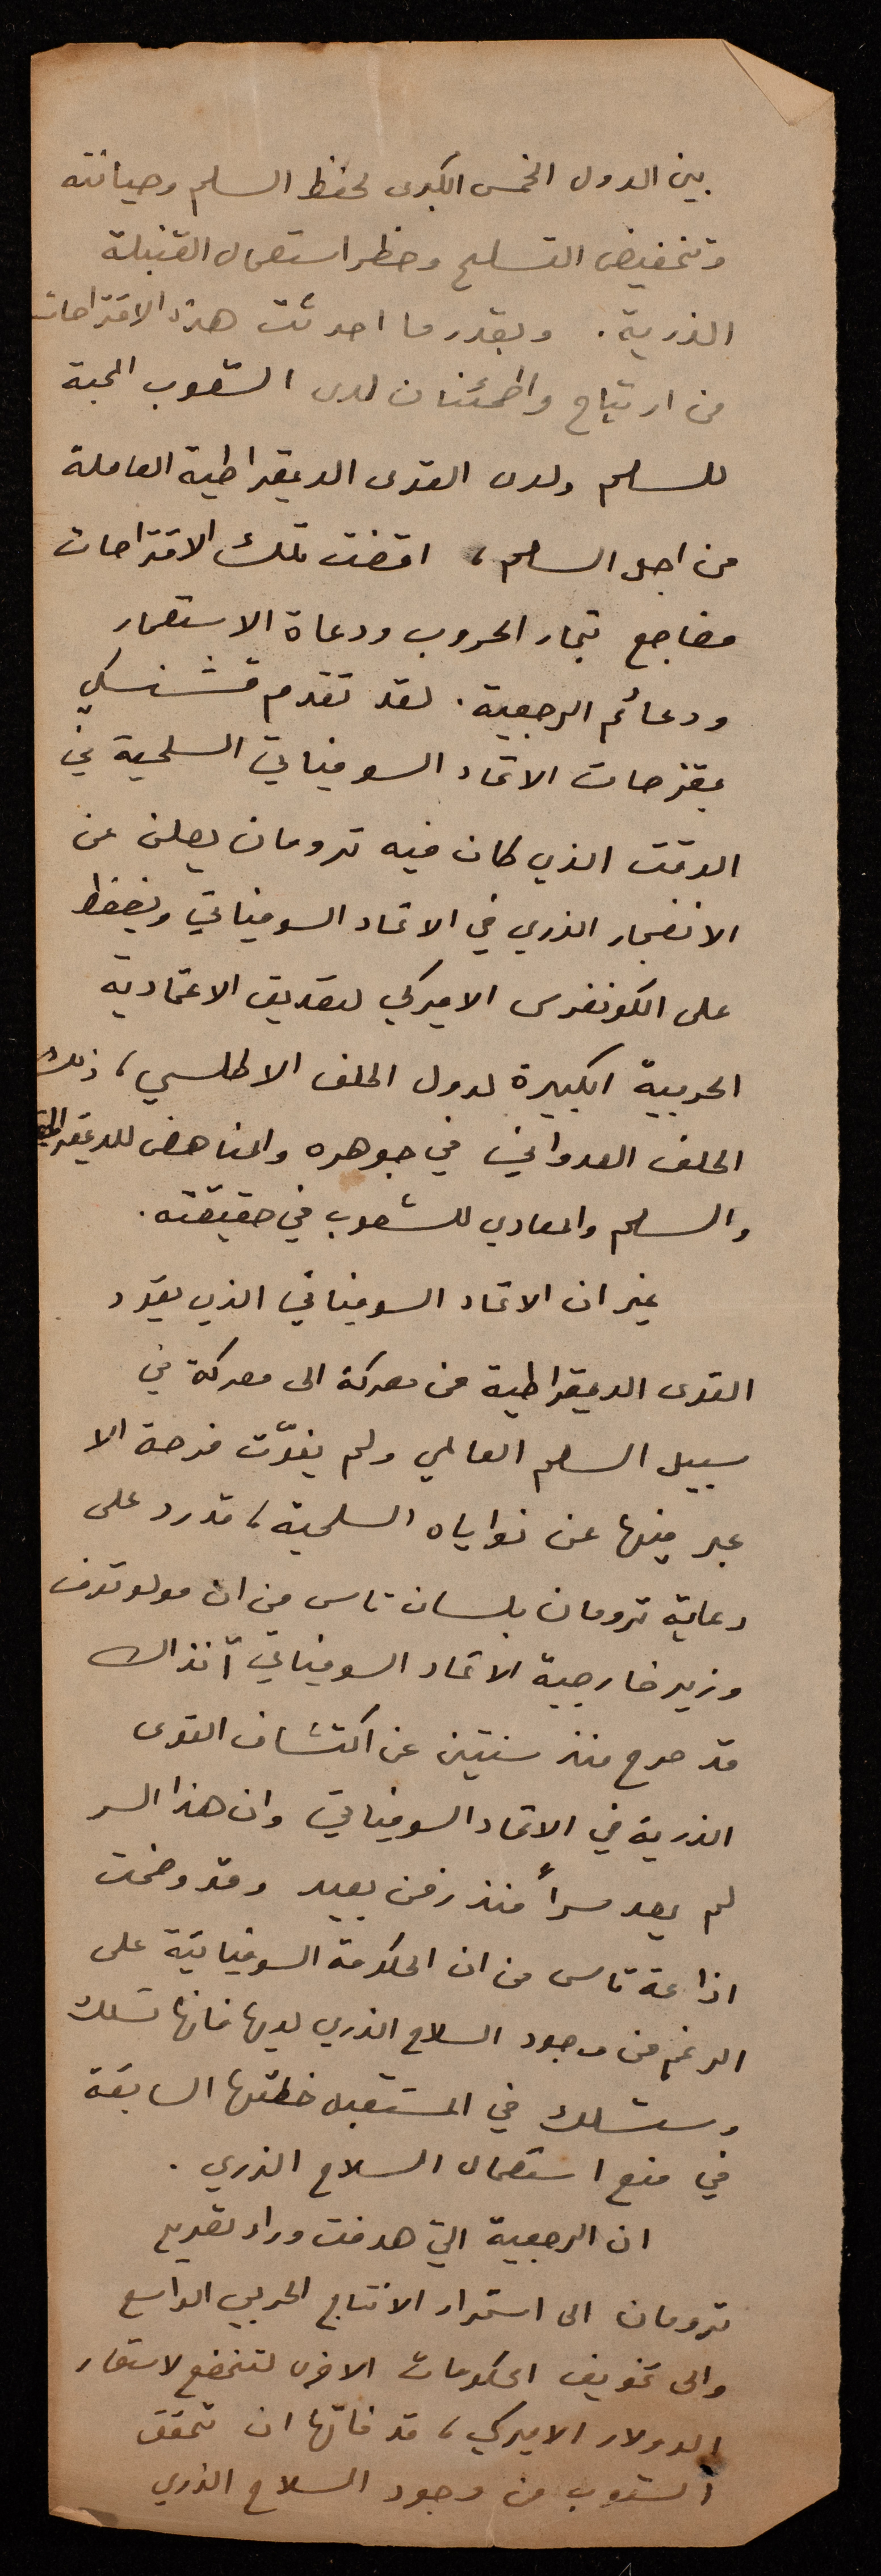 بين الدول الخمس الكبرى لحفظ السلم وصيانته
وتخفيض التسلح وحظر استعمال القنبلة
الذرية. وبقدر ما احدثت هذه الاقتراحات
من ارتياح واطمئنان لدى الشعوب المحبة
للسلم ولدى القوى الديمقراطية العاملة
من اجل السلم، اقضت تلك الاقتراحات
مضاجع تجار الحروب ودعاة الاستعمار
ودعائم الرجعية. لقد تقدم فشنسكي
بمقترحات الاتحاد السوفياتي السلمية في
الوقت الذي كان فيه ترومان يعلن عن
الانفجار الذري في الاتحاد السوفياتي ويضغط
على الكونغرس الاميركي لتصديق الاعتمادية
الحربية الكبيرة لدول الحلف الاطلسي، ذلك
الحلف العدواني في جوهره والمناهض للديمقراطية
والسلم والمعادي للشعوب في حقيقته.
غير ان الاتحاد السوفياتي الذي يقود
القوى الديمقراطية من معركة الى معركة في
سبيل السلم العالمي ولم يفوّت فرصة الا
عبر فيها عن نواياه السلمية، قد رد على
دعاية ترومان بلسان تاس من ان مولوتوف
وزير خارجية الاتحاد السوفياتي آنذاك
قد صرح منذ سنتين عن اكتشاف القوى
الذرية في الاتحاد السوفياتي وان هذا السر
لم يعد سراً منذ زمن بعيد وقد وضحت
اذاعة تاس من ان الحكومة السوفياتية على
الرغم من وجود السلاح الذري لديها فانها تسلك
وستسلك في المستقبل خطتها السابقة
في منع استعمال السلاح الذري.
ان الرجعية التي هدفت وراء تصريح
ترومان الى استمرار الانتاج الحربي الواسع
والى تخويف الحكومات الاخرى لتخضع لاستعمار
الدولار الاميركي، قد فاتها ان تحقق
الشعوب من وجود السلاح الذري